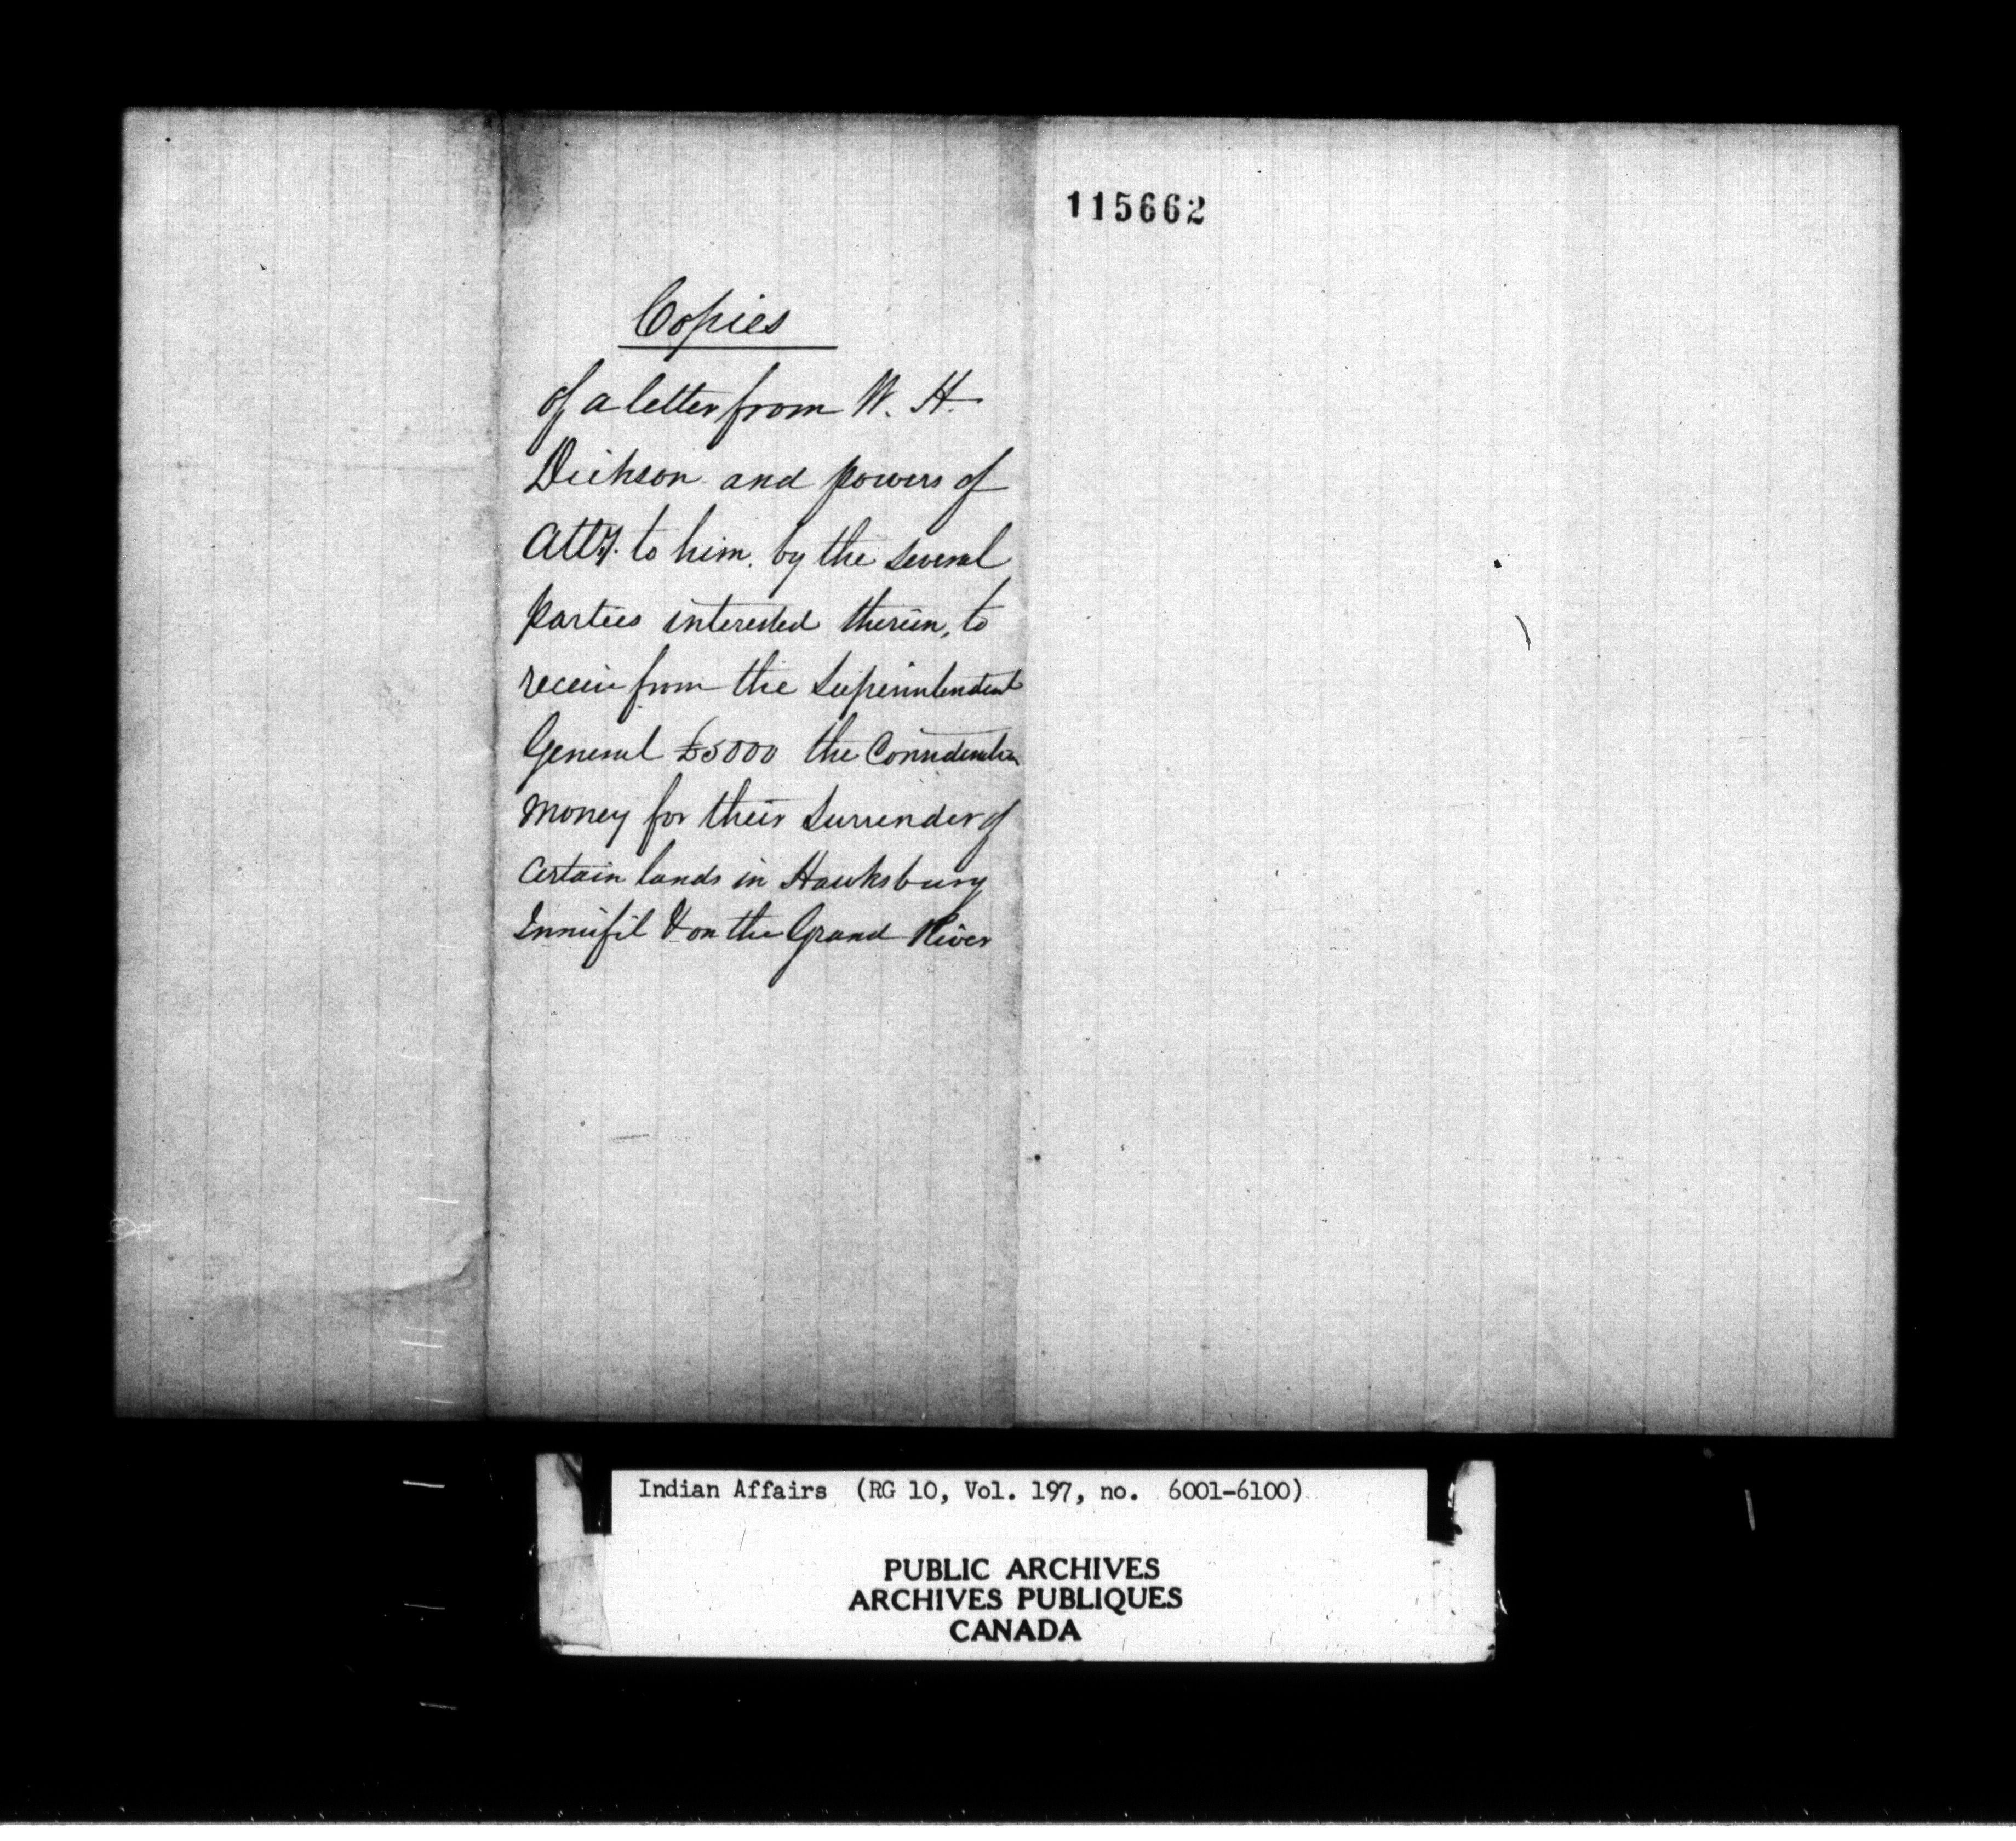 115662
Copies
of a letter from W. H.
Dickson and powers of
Atty. to him, by the several
parties interested therein, to
receive from the Superintendent
General £5000 the Consideration
money for their Surrender of
certain lands in Hawksbury
Innisfil & on the Grand River
Indian Affairs (RG 10, Vol. 197, no. 6001-6100)
PUBLIC ARCHIVES
ARCHIVES PUBLIQUES
CANADA